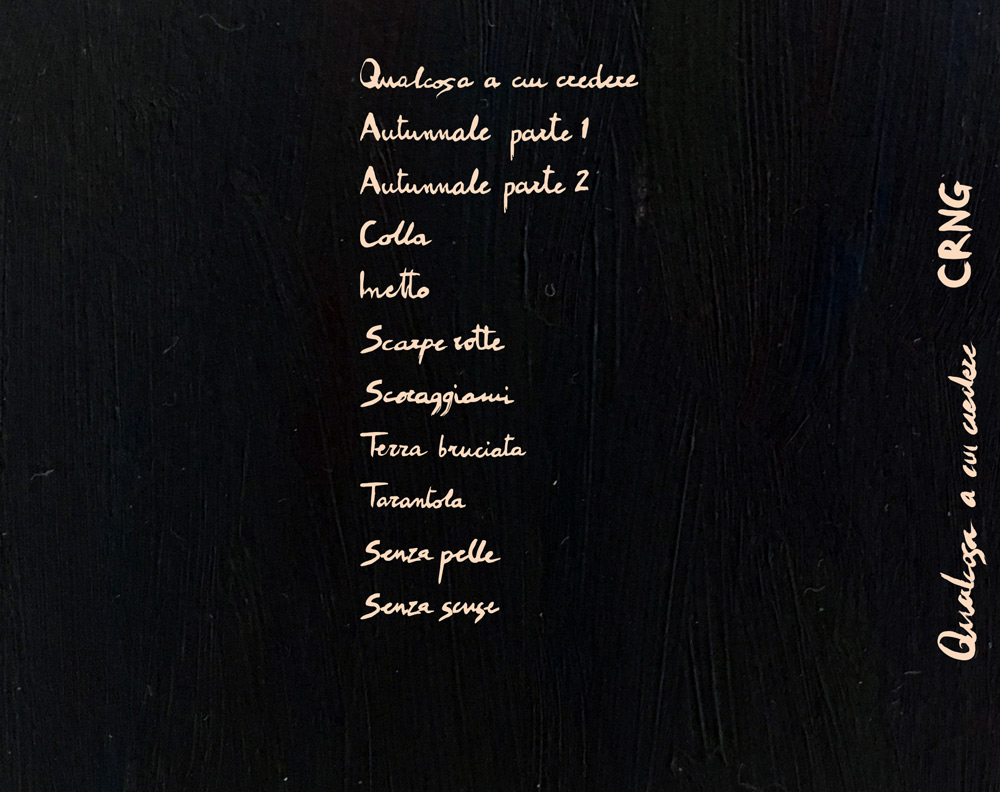 Qualcosa a cui credere
Autunnale parte 1
Autunnale parte 2
Colla
Inetto
Scarpe rotte
Scoraggiami
Terra bruciata
Tarantola
Senza pelle
Senza scuse
Qualcosa a cui credere CRNG